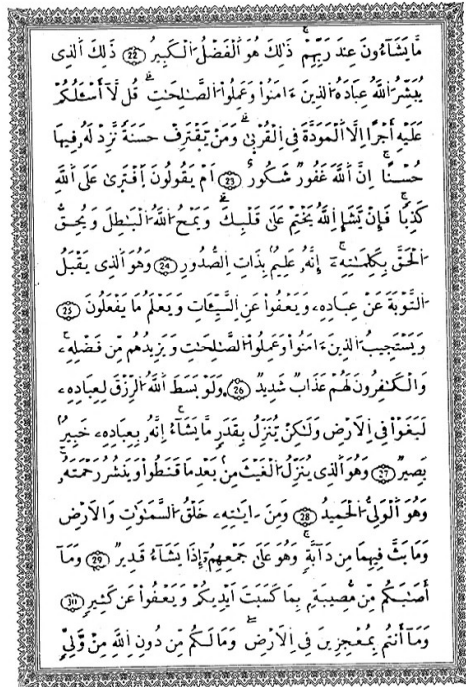 مَّا يَشَآءُونَ عِندَ رَبِّهِمْ ذَٰلِكَ هُوَ اَلْفَضْلُ اُلْكَبِيرُ 22 ذَٰلِكَ اَلذِى
يُبَشِّرُ اُللَّهُ عِبَادَهُ اُلذِينَ ءَامَنُوا وَعَمِلُوا اُلصَّٰلِحَٰتِ قُل لَّا أَسْـَٔلُكُمْ
عَلَيْهِ أَجْرًا اِلَّا اَلْمَوَدَّةَ فِى اِلْقُرْبَىٰ وَمَنْ يَّقْتَرِفْ حَسَنَةً نَّزِدْ لَهُ فِيهَا
حُسْنًا اِنَّ اَللَّهَ غَفُورٌ شَكُورٌ 23 اَمْ يَقُولُونَ اَفْتَرَىٰ عَلَى اَللَّهِ
كَذِبًا فَإِنْ يَّشَإِ اِللَّهُ يَخْتِمْ عَلَىٰ قَلْبِكَ وَيَمْحُ اُللَّهُ اُلْبَٰطِلَ وَيُحِقُّ
اُلْحَقَّ بِكَلِمَٰتِهِۦٓ إِنَّهُ عَلِيمٌ بِذَاتِ اِلصُّدُورِ 24 وَهُوَ اَلذِى يَقْبَلُ
اُلتَّوْبَةَ عَنْ عِبَادِهِۦ وَيَعْفُوا عَنِ اِلسَّيِّـَٔاتِ وَيَعْلَمُ مَا يَفْعَلُونَ 25
وَيَسْتَجِيبُ اُلذِينَ ءَامَنُوا وَعَمِلُوا اُلصَّٰلِحَٰتِ وَيَزِيدُهُم مِّن فَضْلِهِۦ
وَالْكَٰفِرُونَ لَهُمْ عَذَابٌ شَدِيدٌ 26 وَلَوْ بَسَطَ اَللَّهُ اُلرِّزْقَ لِعِبَادِهِۦ
لَبَغَوْا فِى اِلَارْضِ وَلَٰكِنْ يُّنَزِّلُ بِقَدَرٍ مَّا يَشَآءُ اِنَّهُ بِعِبَادِهِۦ خَبِيرٌ
بَصِيرٌ 27 وَهُوَ اَلذِى يُنَزِّلُ اُلْغَيْثَ مِنۢ بَعْدِ مَا قَنَطُوا وَيَنشُرُ رَحْمَتَهُ
وَهُوَ اَلْوَلِىُّ اُلْحَمِيدُ 28 وَمِنَ ـايَٰتِهِۦ خَلْقُ اُلسَّمَٰوَٰتِ وَالَارْضِ
وَمَا بَثَّ فِيهِمَا مِن دَآبَّةٍ وَهُوَ عَلَىٰ جَمْعِهِمُۥٓ إِذَا يَشَآءُ قَدِيرٌ 29 وَمَآ
أَصَٰبَكُم مِّن مُّصِيبَةٍ بِمَا كَسَبَتَ اَيْدِيكُمْ وَيَعْفُوا عَن كَثِيرٍ 30
وَمَآ أَنتُم بِمُعْجِزِينَ فِى اِلَارْضِ وَمَا لَكُم مِّن دُونِ اِللَّهِ مِنْ وَّلِىٍّ